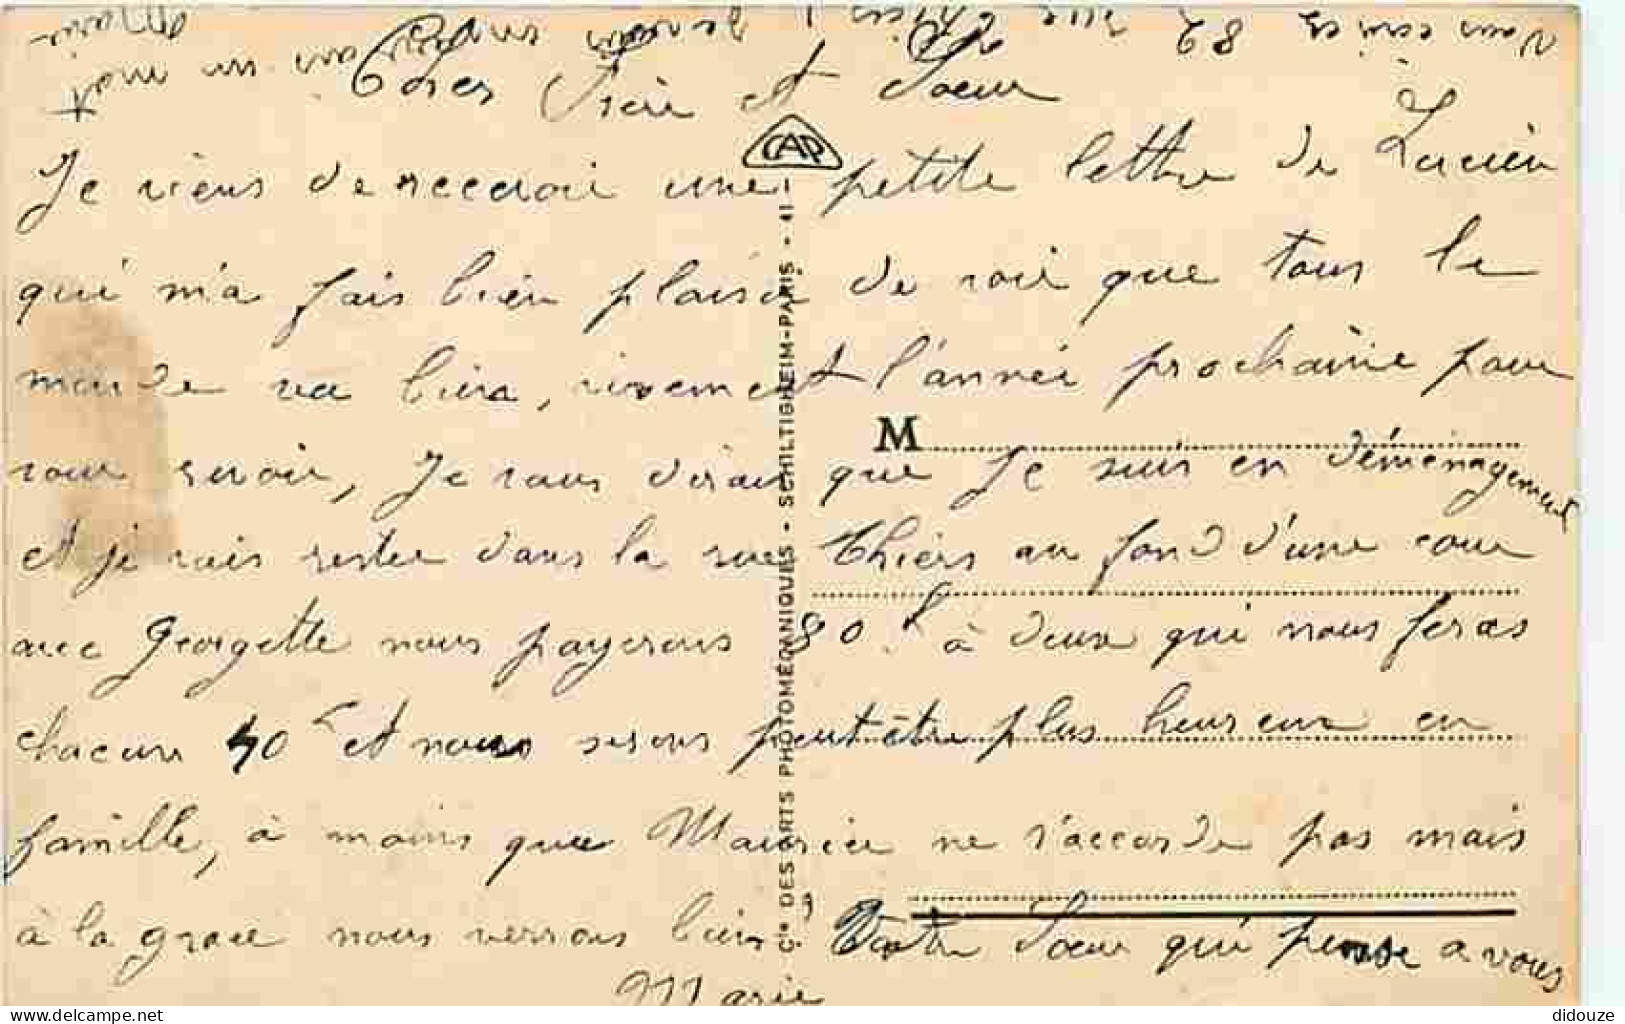 Chers Frère et Soeur
Je viens de recevoir une petite lettre de Lucien
qui m'a fais bien plaisir de voir que tous le
monde va bien, vivement l'année prochaine pour
vous revoir, Je vous dirais que Je suis en déménagement
et je vais rester dans la rue Thiers au fond d'une cour
avec Georgette nous payerons 80 f à deux qui nous feras
chacune 40 f et nous serons peut être plus heureux en
famille, à moins que Maurice ne s'accorde pas mais
à la grace nous verrons bien. Votre Soeur qui pense a vous
Marie
CAP
Cie DES ARTS PHOTOMÉCANIQUES - SCHILTIGHEIM-PARIS - 11
M
didouze